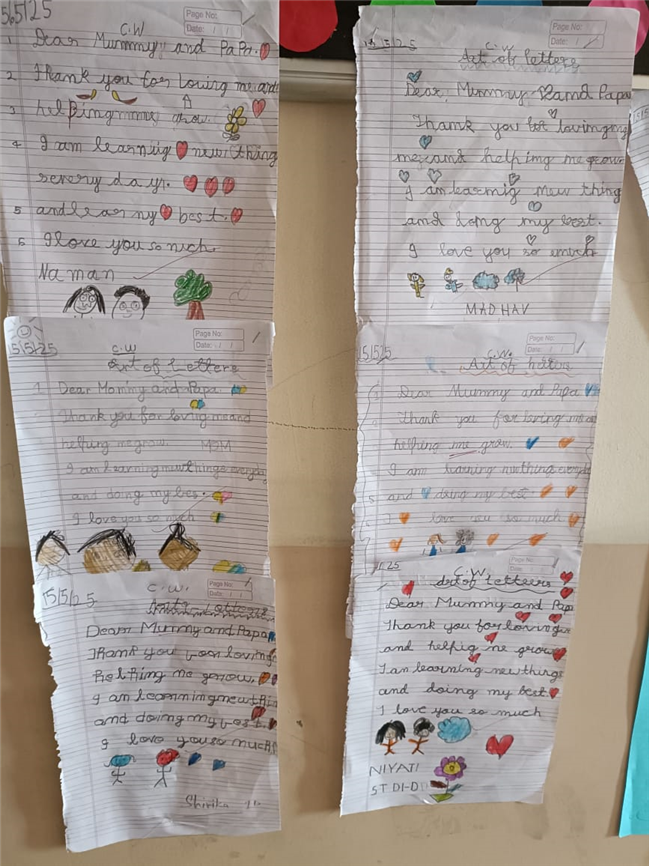 5/5/25
C.W
Page No:
Date: / /
1 Dear Mummy and PaPa.
2 Thank you for Loving me and
3 helpingmme grow.
4 I am learnig new thing
severy days.
5 and lear ny best.
6 I love you so nuch.
Naman
15/5/25
C.W
Page No:
Date: / /
Art of Letters
1. Dear Mommy and Papa
Thank you for lovig me and
helping me grow. MOM
I am learning new things everyday
and doing my bes.
I love you so much
15/5/25
C.W.
Page No:
Date: / /
Letters
Dear Mummy and Papa
Thank you for loving
helping me grow.
I an learnning new thin
and doing my best.
I love you so much
Shivika
15/5/25
C.W
Page No:
Date: / /
Art of letters
Dear, Mummy and Papa
Thank you lovingmy
me and helping me grow
I am learnig new thing
and my best.
I love you so much
MADHAV
15/5/25
C.W.
Page No:
Date: / /
Art of
Dear Mummy and Papa
Thank you for loving me
helping me grow.
I am learning
5 and doing my best
I love you so much
C.W.
Page No:
Date: / /
Art of Letteirs
Dear Mummy and Papa
Thank you for loving
and helpig me grow
I an learning new things
and doing my best
I love you so much
NIYATI
ST DI-D